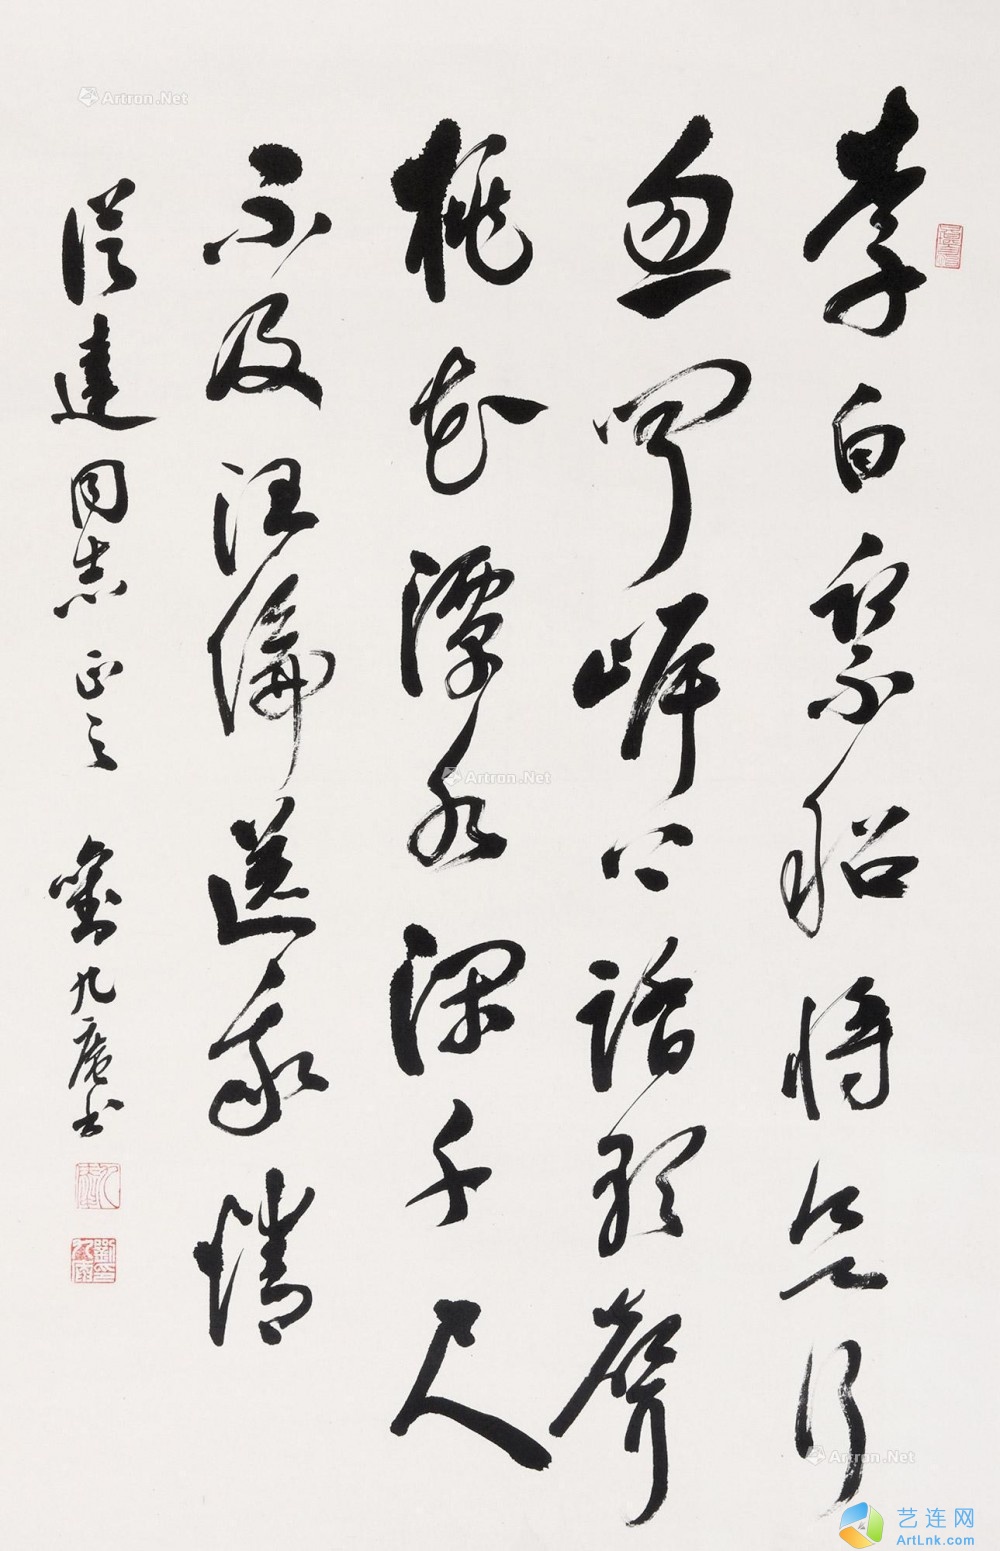 李白乘船将欲行
忽聞岸上踏歌聲
桃花潭水深千尺
不及汪倫送我情
從達同志正之 劉九庵书
Artron.Net
Artron.Net
Artron.Net
艺连网
ArtLnk.com